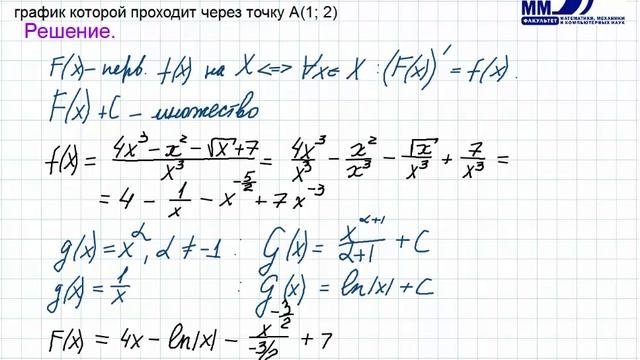 график которой проходит через точку A(1; 2)
ММ
ФАКУЛЬТЕТ МАТЕМАТИКИ, МЕХАНИКИ И КОМПЬЮТЕРНЫХ НАУК
Решение.
F(x) – перв. f(x) на X <=> ∀x∈X : (F(x))' = f(x).
F(x) + C – множество
f(x) = (4x³ – x² – √x + 7)/x³ = 4x³/x³ – x²/x³ – √x/x³ + 7/x³ =
= 4 – 1/x – x^(-5/2) + 7x^(-3)
g(x) = x^α, α ≠ -1 : G(x) = x^(α+1)/(α+1) + C
g(x) = 1/x : G(x) = ln|x| + C
F(x) = 4x – ln|x| – x^(-3/2)/(-3/2) + 7